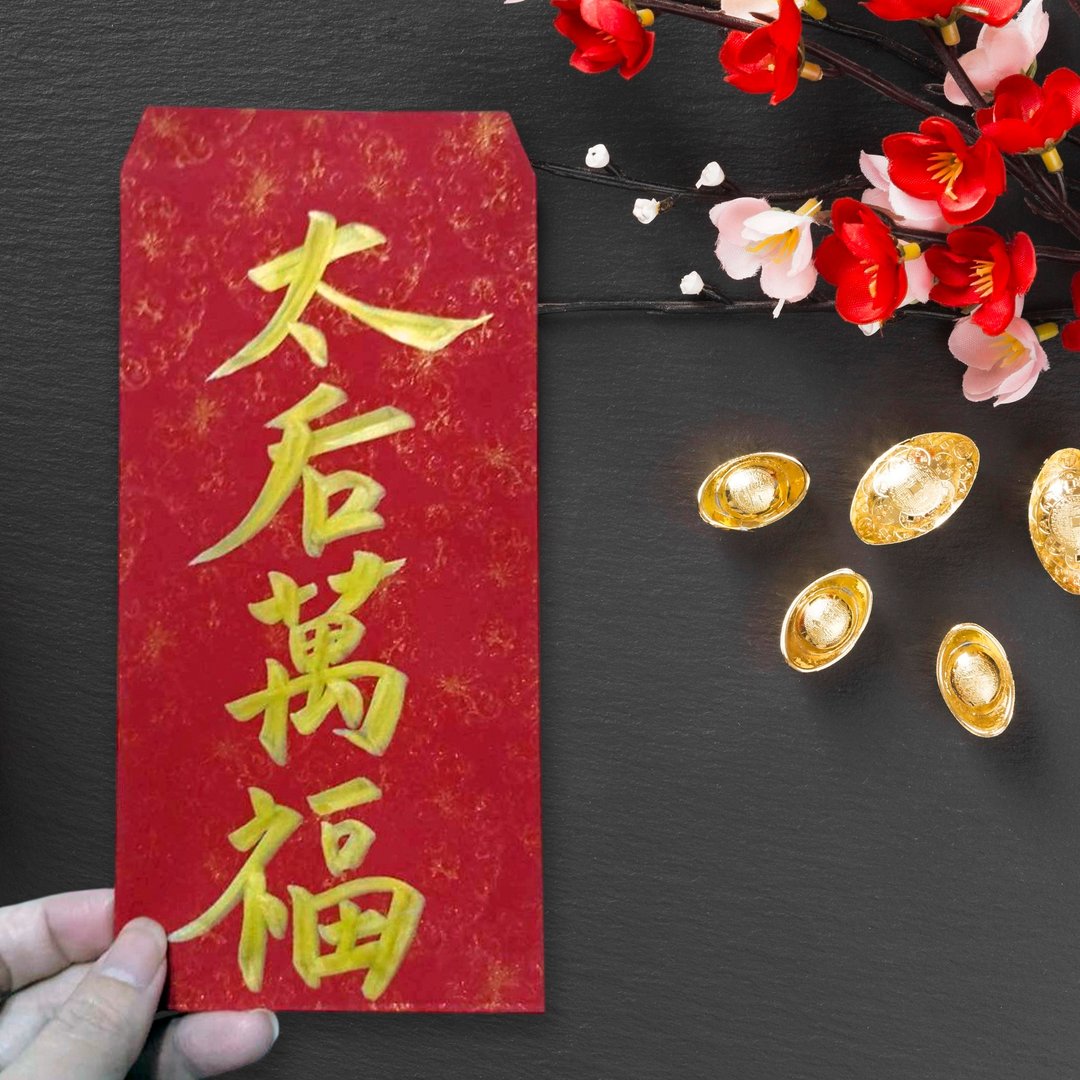 太后萬福